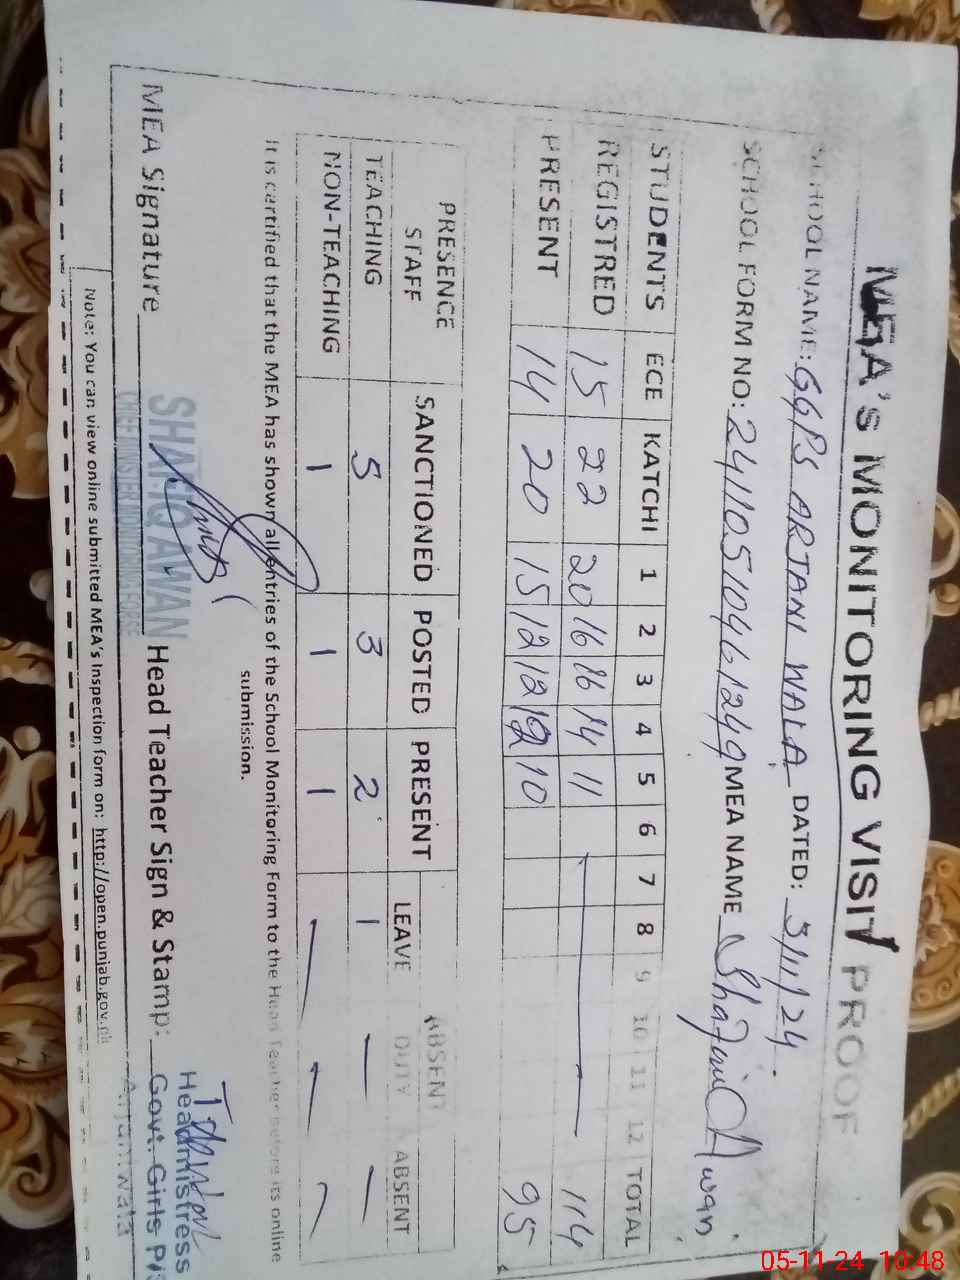 MEA's MONITORING VISIT PROOF
SCHOOL NAME: GGPS ARTANI WALA DATED: 5/11/24
SCHOOL FORM NO: 24110510461249 MEA NAME Shafiq Awan
STUDENTS ECE KATCHI 1 2 3 4 5 6 7 8 9 10 11 12 TOTAL
REGISTRED 15 22 20 16 16 14 11 114
PRESENT 14 20 15 12 12 12 10 95
PRESENCE STAFF SANCTIONED POSTED PRESENT ABSENT
LEAVE DUTY ABSENT
TEACHING 5 3 2 1 — —
NON-TEACHING 1 1 1 — — —
It is certified that the MEA has shown all entries of the School Monitoring Form to the Head Teacher before its online
submission.
MEA Signature Head Teacher Sign & Stamp:
SHAFIQ AWAN
Headmistress
Govt. Girls P/S
Note: You can view online submitted MEA's Inspection form on: http://open.punjab.gov.pk
05-11-24 10:48